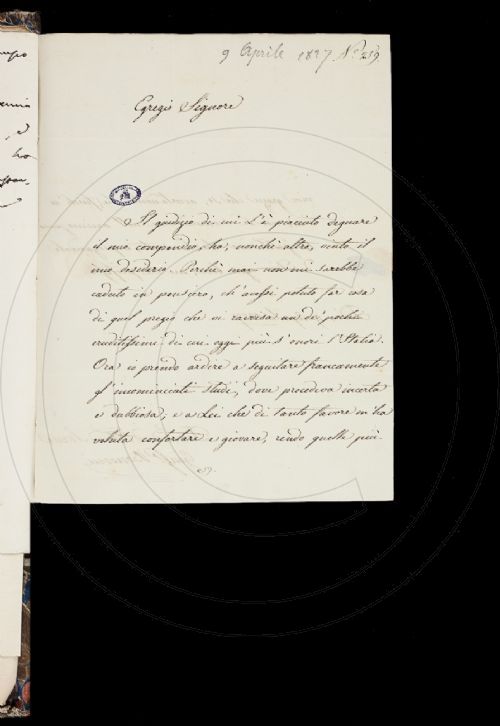 9 Aprile 1827 N.
Egregi Signore
Il giudizio di cui L'è piaciuto degnare
il mio compendio, ha, nonchè altro, vinto il
mio desiderio. Perchè mai non mi sarebbe
caduto in pensiero, ch'avessi potuto far cosa
di quel pregio che vi ravvisa un de' pochi
eruditissimi di cui oggi più s'onori l'Italia.
Ora io prendo ardire a seguitare francamente
gl'incominciati studi, dove procedeva incerta
e dubbiosa, e a Lei che di tanto favore m'ha
voluta confortare e giovare, rendo quelle più